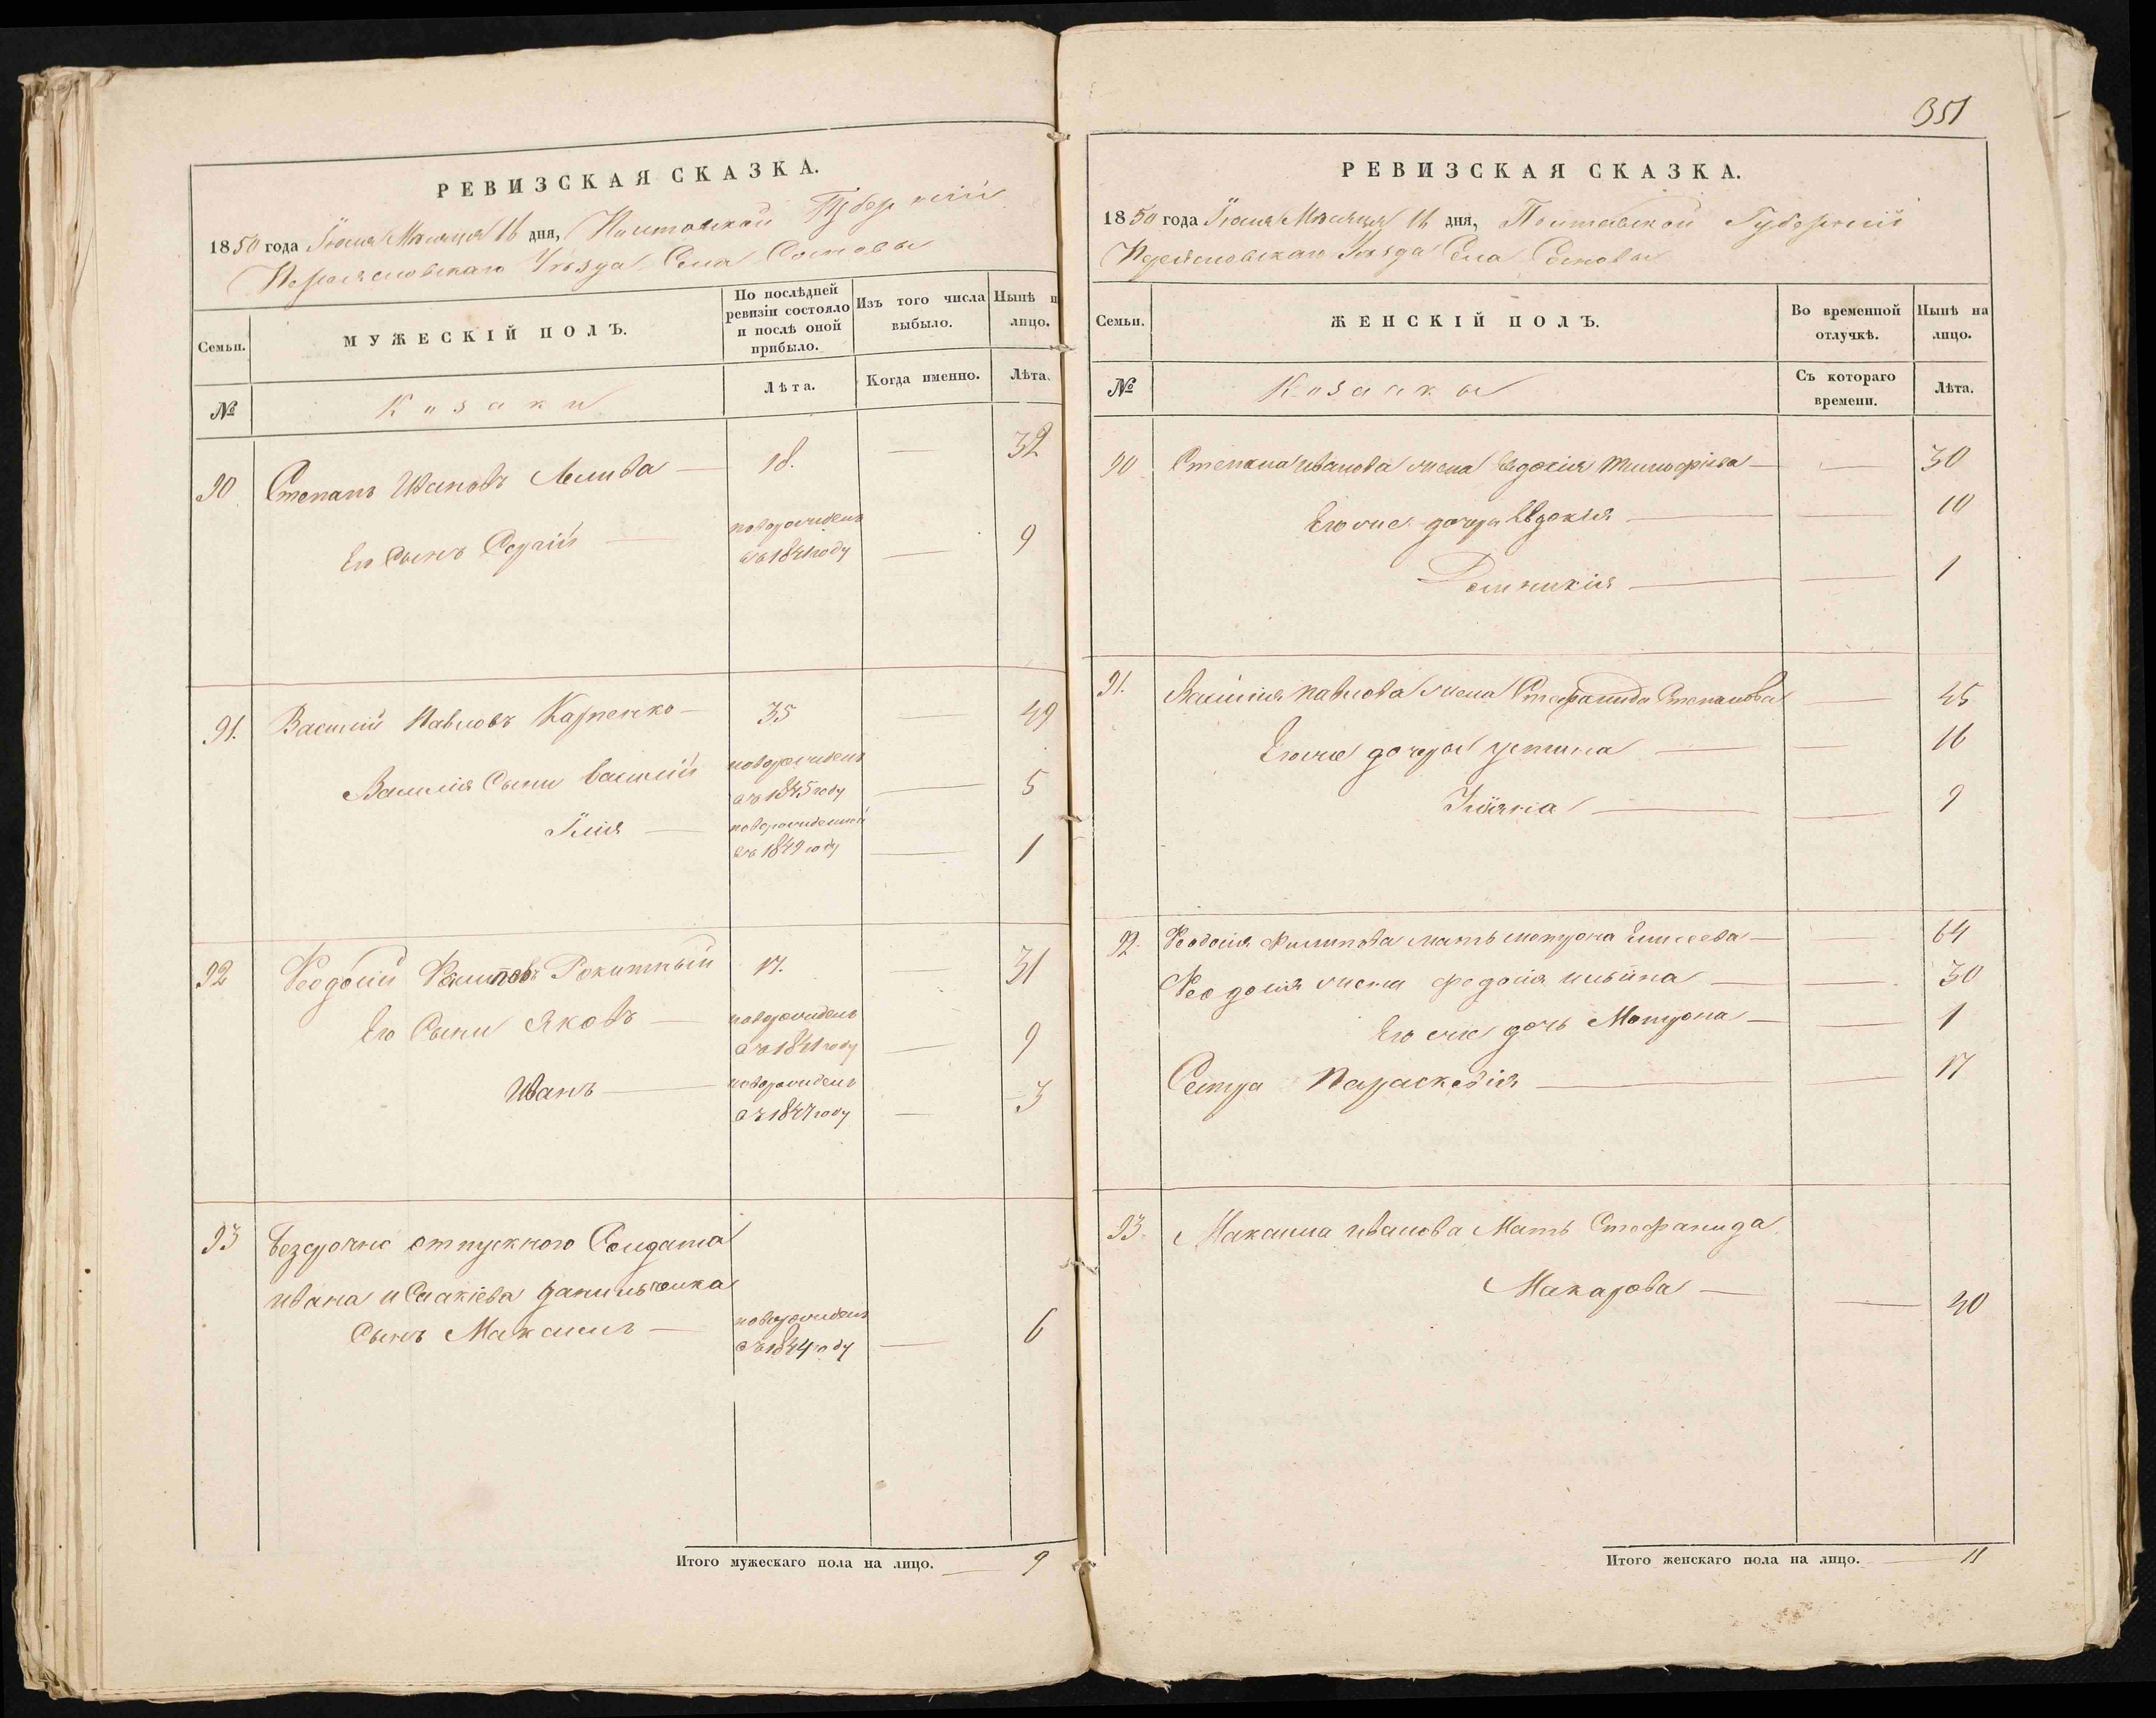 РЕВИЗСКАЯ СКАЗКА.
1850 года Іюня Месяца 16 дня, Полтавской Губерніи
Переясловскаго Уѣзда Села Сосновы
Семьи.
МУЖЕСКІЙ ПОЛЪ.
По послѣдней ревизіи состояло и послѣ оной прибыло.
Изъ того числа выбыло.
Нынѣ н лицо.
№
Козаки
Лѣта.
Когда именно.
Лѣта.
90 Степанъ Ивановъ — 18. — 32
Его Сынъ Сергій — новорожденъ въ 1841 году — 9
91. Василій Павловъ Карпенко — 35 — 49
Василія Сыни Василій новорожденъ въ 1845 году — 5
Илія — новорожденный въ 1849 году — 1
92 Феодосій Филиповъ Рокитный 17. 31
Его Сыни Яковъ — новорожденъ въ 1841 году — 9
Иванъ — новорожденъ въ 1847 году — 3
93 Безсрочно отпускного Солдата
Ивана Исакіева Данильченка
Сынъ Максимъ — новорожденъ въ 1844 году — 6
Итого мужескаго пола на лицо. — 9
351
РЕВИЗСКАЯ СКАЗКА.
1850 года Іюня Месяца 16 дня, Полтавской Губерніи
Переясловскаго Уѣзда Села Сосновы
Семьи.
ЖЕНСКІЙ ПОЛЪ.
Во временной отлучкѣ.
Нынѣ на лицо.
№
Козачки
Съ котораго времени.
Лѣта.
90 Степана Иванова жена Евдокія Тимофіева — — 30
Его же дочери Евдокія — — 10
Домникія — — 1
91. Василія Павлова жена Стефанида Степанова — 45
Его же дочери Устина — — 16
Уліяна — — 9
92. Феодосія Филипова мать Мотрона Елисеева — 64
Феодосія жена Федосія Ильина — — 30
Его же дочь Мотрона — — 1
Сестра Параскевія — — 17
93. Максима Иванова Мать Стефанида
Макарова — — 40
Итого женскаго пола на лицо. — 11